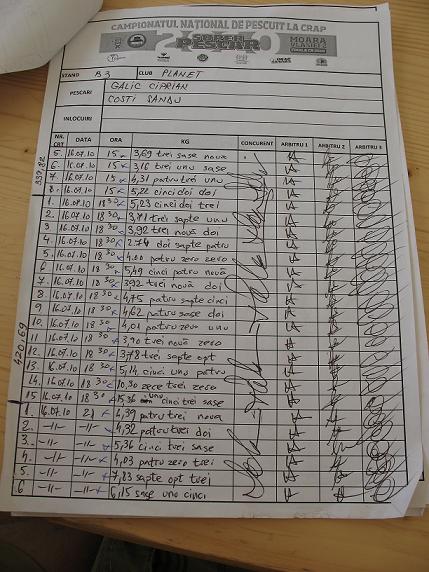 CAMPIONATUL NAȚIONAL DE PESCUIT LA CRAP
SUPER
PESCAR
MOARA
VLĂSIEI 2
STAND B3 CLUB PLANET
PESCARI GALIC CIPRIAN
COSTI SANDU
INLOCUIRI
NR. CRT DATA ORA KG CONCURENT ARBITRU 1 ARBITRU 2 ARBITRU 3
5. 16.07.10 15 3,69 trei sase noua
6. 16.07.10 15 3,16 trei unu sase
7. 16.07.10 15 4,31 patru trei unu
8. 16.07.10 15 5,22 cinci doi doi
1. 16.07.10 18 30 5,23 cinci doi trei
2. 16.07.10 18 30 3,71 trei sapte unu
3 16.07.10 18 30 3,92 trei nouă doi
4. 16.07.10 18 30 2.74 doi sapte patru
5. 16.07.10 18 30 4.00 patru zero zero
6 16.07.10 18 30 5,49 cinci patru nouă
7. 16.07.10 18 30 3,92 trei nouă doi
8 16.07.10 18 30 4,75 patru sapte cinci
9 16.07.10 18 30 4,62 patru sase doi
10. 16.07.10 18 30 4,01 patru zero unu
11 16.07.10 18 30 3,90 trei nouă zero
12. 16.07.10 18 30 3,78 trei sapte opt
13. 16.07.10 18 30 5,14 cinci unu patru
14. 16.07.10 18 30 10,30 zece trei zero
15 16.07.10 18 30 15,36 unu cinci trei sase
1. 16.07.10 21 4,39 patru trei noua
2. -11- -11- 4,32 patru trei doi
3. -11- -11- 5,36 cinci trei sase
4. -11- -11- 4,03 patru zero trei
5. -11- -11- 7,83 sapte opt trei
6 -11- -11- 6,15 sase unu cinci
339,82
420,69